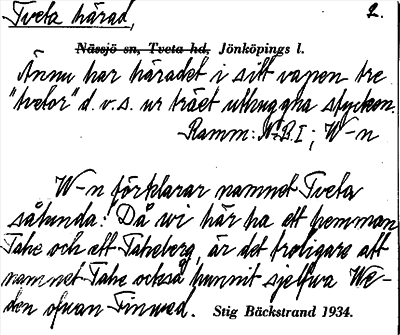 Tveta härad, 2.
Nässjö sn, Tveta hd, Jönköpings l.
Ännu har häradet i sitt vapen tre
"tvetor" d.v.s. ur träet uthuggna stycken.
Ramm: N:B.I; W-n
W-n förklarar namnet Tveta
sålunda: Då wi här ha ett hemman
Tahe och ett Taheberg, är det troligare att
namnet Tahe också funnit sjelfwa We-
den ofwan Finwed. Stig Bäckstrand 1934.